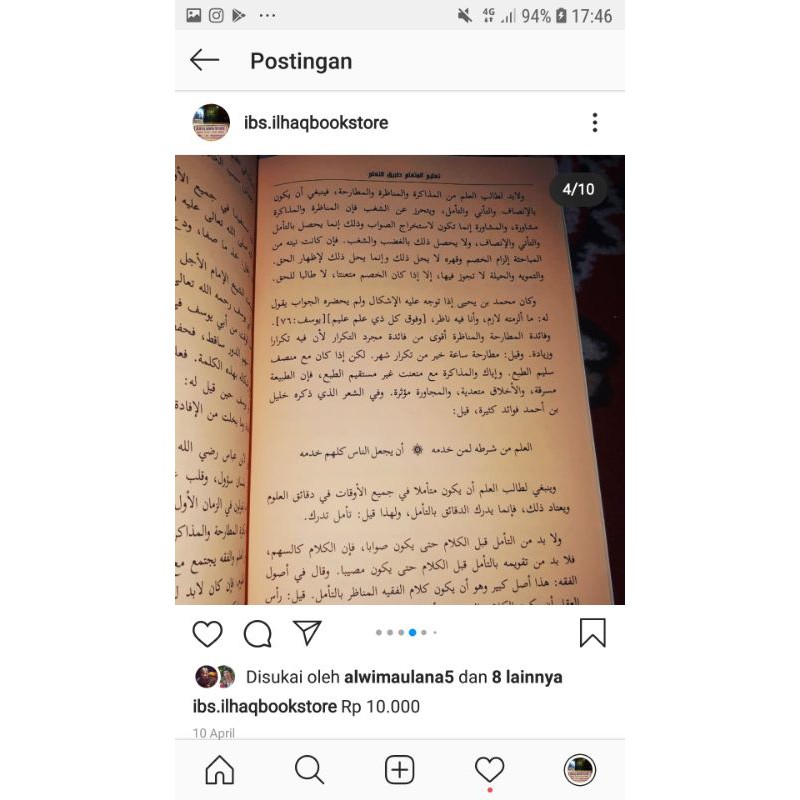 94% 17:46
4G
Postingan
ibs.ilhaqbookstore
4/10
تعليم المتعلم طريق التعلم
ولابد لطالب العلم من المذاكرة والمناظرة والمطارحة، فينبغي أن يكون
بالإنصاف والتأني والتأمل، ويتحرز عن الشغب فإن المناظرة والمذاكرة
مشاورة، والمشاورة إنما تكون لاستخراج الصواب وذلك إنما يحصل بالتأمل
والتأني والإنصاف، ولا يحصل ذلك بالغضب والشغب. فإن كانت نيته من
المباحثة إلزام الخصم وقهره لا يحل ذلك وإنما يحل ذلك لإظهار الحق.
والتمويه والحيلة لا تجوز فيها، إلا إذا كان الخصم متعنتا، لا طالبا للحق.
وكان محمد بن يحيى إذا توجه عليه الإشكال ولم يحضره الجواب يقول
له: ما ألزمته لازم، وأنا فيه ناظر، [وفوق كل ذي علم عليم][يوسف:٧٦].
وفائدة المطارحة والمناظرة أقوى من فائدة مجرد التكرار لأن فيه تكرارا
وزيادة. وقيل: مطارحة ساعة خير من تكرار شهر. لكن إذا كان مع منصف
سليم الطبع. وإياك والمذاكرة مع متعنت غير مستقيم الطبع، فإن الطبيعة
مسرقة، والأخلاق متعدية، والمجاورة مؤثرة. وفي الشعر الذي ذكره خليل
بن أحمد فوائد كثيرة، قيل:
العلم من شرطه لمن خدمه أن يجعل الناس كلهم خدمه
وينبغي لطالب العلم أن يكون متأملا في جميع الأوقات في دقائق العلوم
ويعتاد ذلك، فإنما يدرك الدقائق بالتأمل، ولهذا قيل: تأمل تدرك.
ولا بد من التأمل قبل الكلام حتى يكون صوابا، فإن الكلام كالسهم،
فلا بد من تقويمه بالتأمل قبل الكلام حتى يكون مصيبا. وقال في أصول
الفقه: هذا أصل كبير وهو أن يكون كلام الفقيه المناظر بالتأمل. قيل: رأس
Disukai oleh alwimaulana5 dan 8 lainnya
ibs.ilhaqbookstore Rp 10.000
10 April